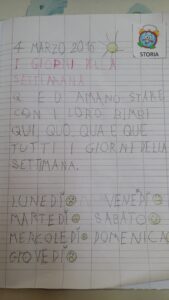 4 MARZO 2016
STORIA
I GIORNI DELLA
SETTIMANA
Q E U AMANO STARE
CON I LORO BIMBI
QUI, QUO, QUA E QUE
TUTTI I GIORNI DELLA
SETTIMANA.
LUNEDÌ VENERDÌ
MARTEDÌ SABATO
MERCOLEDÌ DOMENICA
GIOVEDÌ